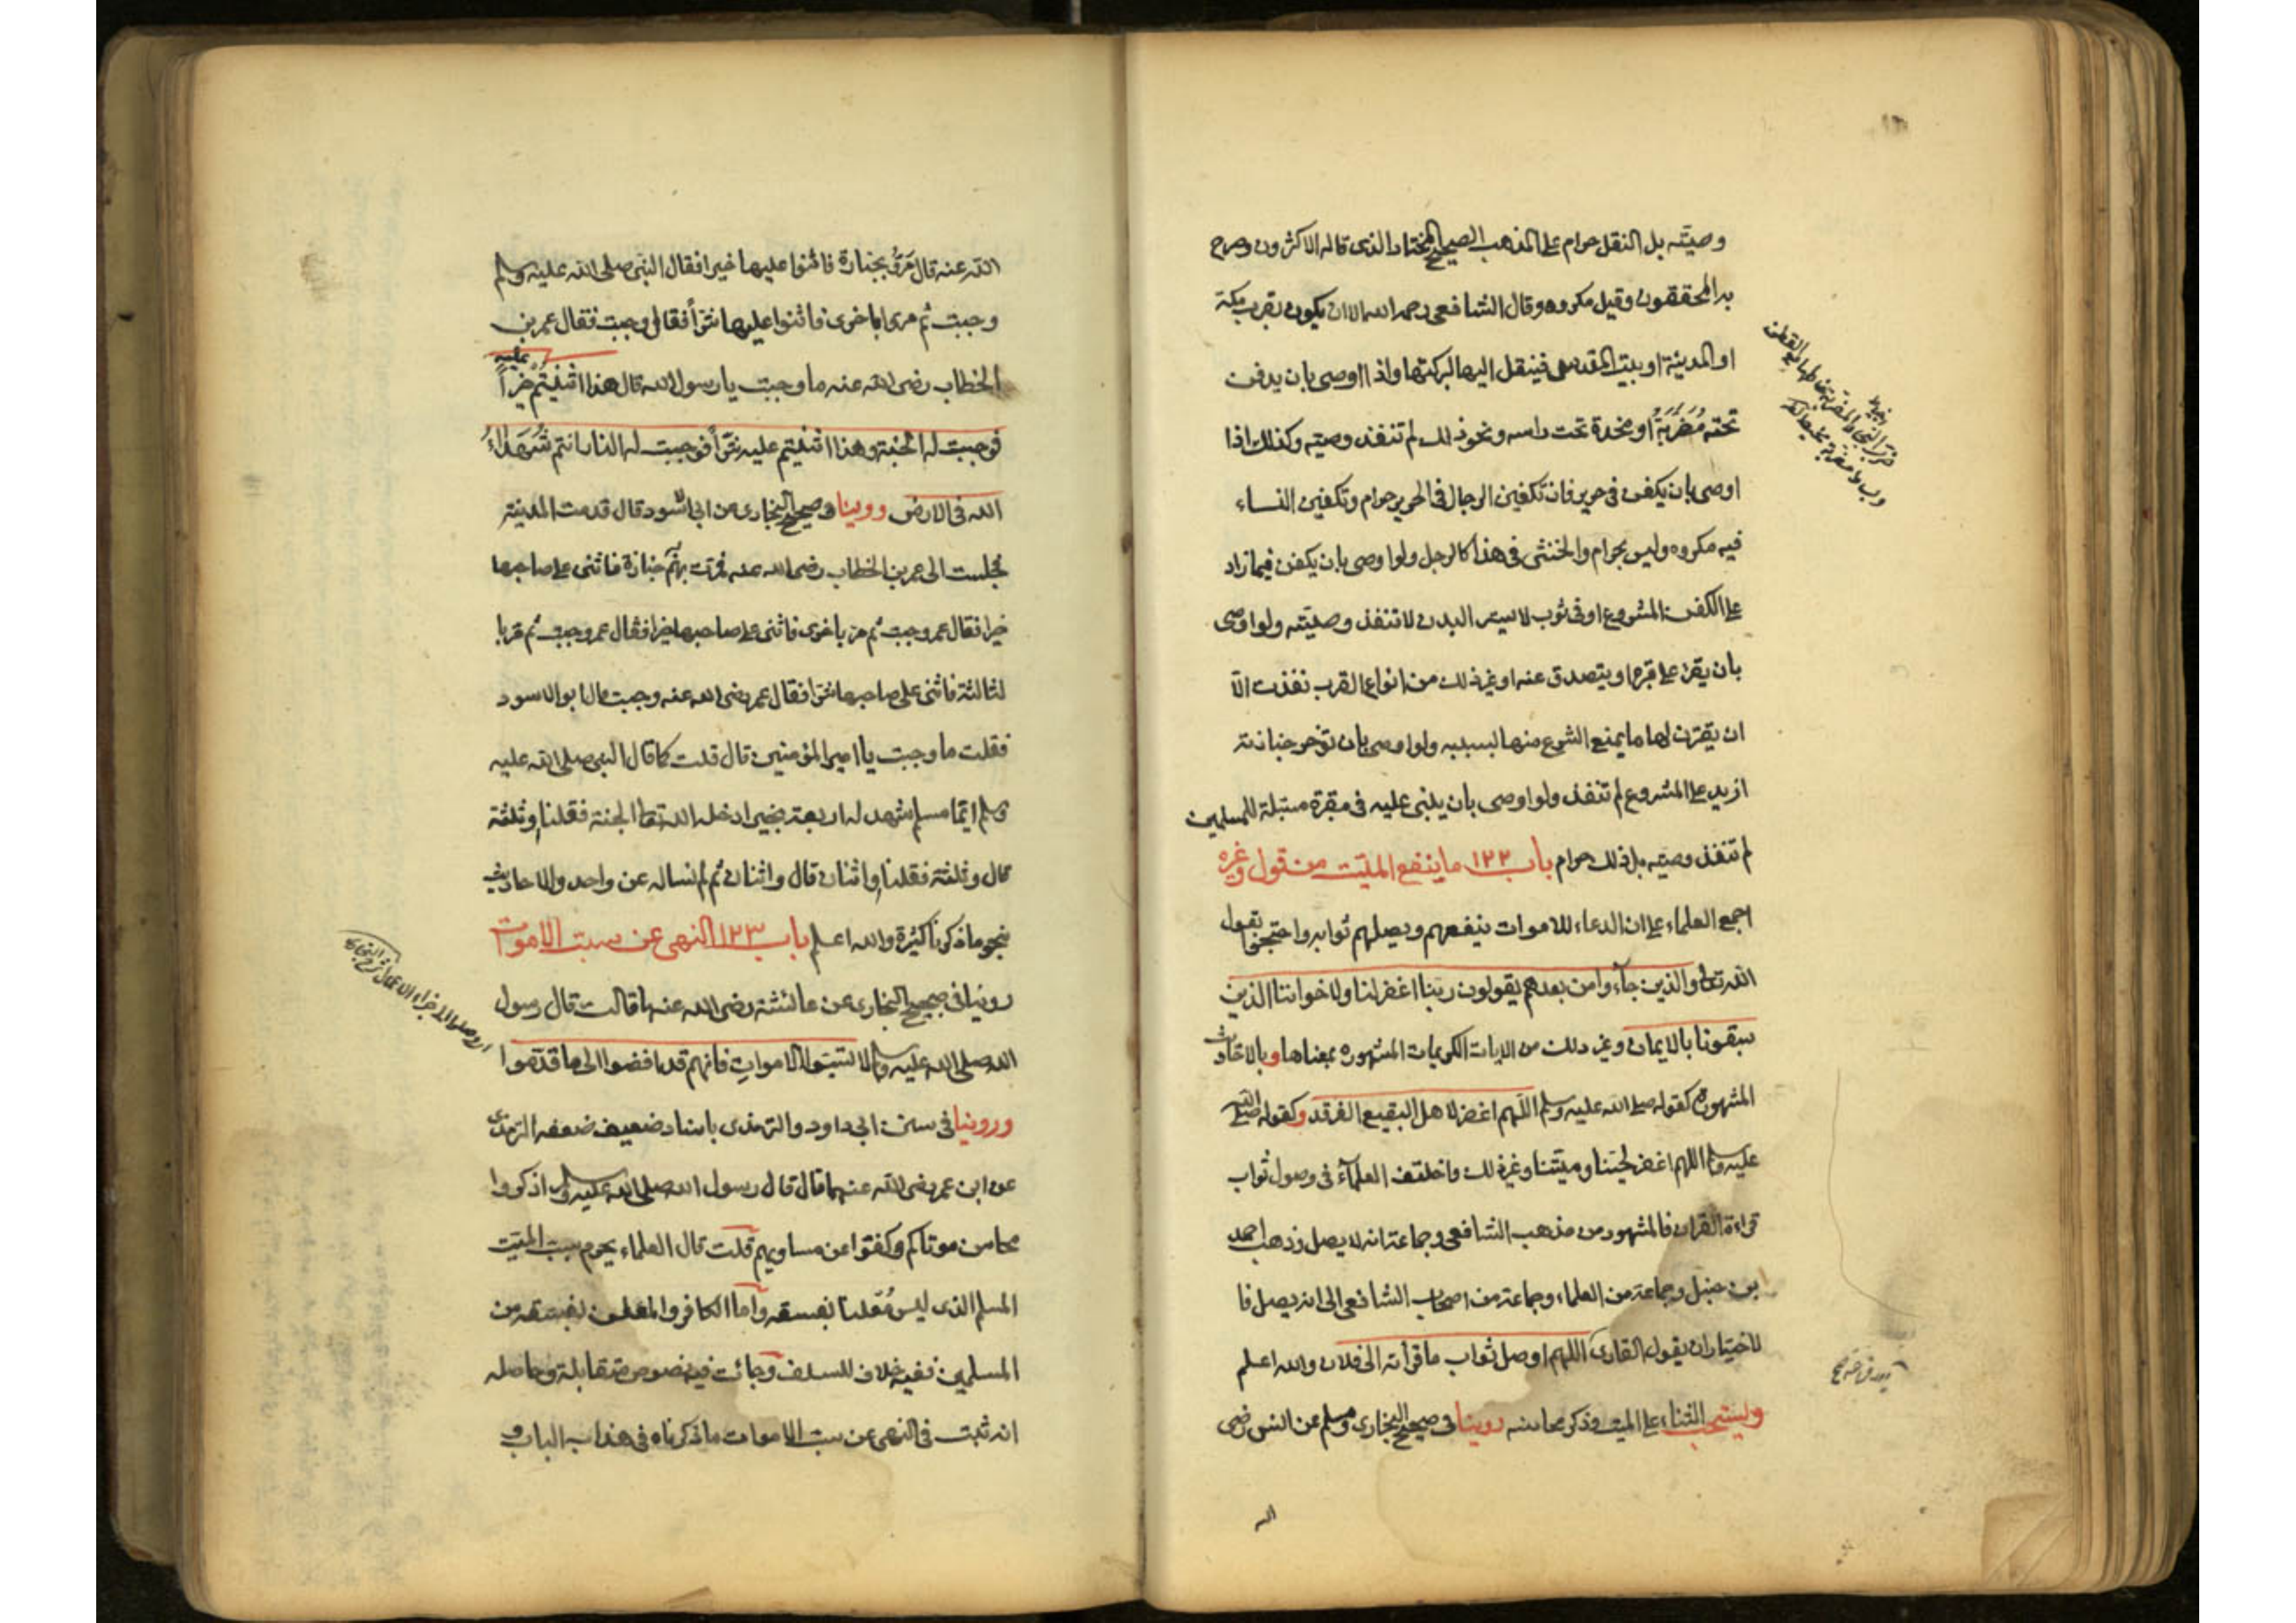 وصيته بل النقل حرام على المذهب الصحيح المختار الذى قاله الاكثرون وصرح
به المحققون وقيل مكروه وقال الشافعى رحمه الله الا ان يكون بقرب مكة
او المدينة او بيت المقدس فينقل اليها لبركتها واذا اوصى بان يدفن
تحته مُضَرَّبَةٌ او مخدة تحت راسه ونحو ذلك لم تنفذ وصيته وكذلك اذا
اوصى بان يكفن فى حرير فان تكفين الرجال فى الحرير حرام وتكفين النساء
فيه مكروه وليس بحرام والخنثى فى هذا كالرجل ولو اوصى بان يكفن فيما زاد
على الكفن المشروع او فى ثوب لا يستر البدن لا تنفذ وصيته ولو اوصى
بان يقرء على قبره او يتصدق عنه او غير ذلك من انواع القرب نفذت الّا
ان يقترن لها ما يمنع الشرع منها بسببه ولو اوصى بان تؤخر جنازته
ازيد على المشروع لم تنفذ ولو اوصى بان يبنى عليه فى مقبرة مسبلة للمسلمين
لم تنفذ وصيته بل ذلك حرام باب ١٢٢ ما ينفع الميّت من قول وغيره
اجمع العلماء على ان الدعاء للاموات ينفعهم ويصلهم ثوابه واحتجوا بقول
الله تعالى والذين جآءوا من بعدهم يقولون ربنا اغفر لنا ولاخواننا الذين
سبقونا بالايمان وغير ذلك من الايات الكريمات المشهوره بمعناها وبالاحاديث
المشهورة كقوله صلى الله عليه وسلم اللّهم اغفر لاهل البقيع الغرقد وكقوله صلى الله
عليه وسلم اللهم اغفر لحيّنا وميّتنا وغير ذلك واختلف العلمآء فى وصول ثواب
قراءة القران فالمشهور من مذهب الشافعى وجماعة انه لا يصل وذهب احمد
بن حنبل وجماعة من العلماء وجماعة من اصحاب الشافعى الى انه يصل فا
لاختيار ان يقول القارى اللهم اوصل ثواب ما قرأته الى فلان والله اعلم
ويستحب الثناء على الميت وذكر محاسنه روينا فى صحيح البخارى ومسلم عن انس رضى
الله
الله عنه قال مَرُّوا بجنازة فاثنوا عليها خيرا فقال النبى صلى الله عليه وسلم
وجبت ثم مروا باخرى فاثنوا عليها شرّاً فقال وجبت فقال عمر بن
الخطاب رضى الله عنه ما وجبت يا رسول الله قال هذا اثنيتم عليه خيراً
فوجبت له الجنة وهذا اثنيتم عليه شرّاً فوجبت له النار انتم شُهَدَاءُ
الله فى الارض وروينا فى صحيح البخارى عن ابى الاسود قال قدمت المدينة
فجلست الى عمر بن الخطاب رضى الله عنه فمرّت بهم جنازة فاثنى على صاحبها
خيرا فقال عمر وجبت ثم مرّ باخرى فاثنى على صاحبها خيرا فقال عمر وجبت ثم مرّ با
لثالثة فاثنى على صاحبها شرّا فقال عمر رضى الله عنه وجبت قال ابو الاسود
فقلت ما وجبت يا امير المؤمنين قال قلت كما قال النبى صلى الله عليه
وسلم ايّما مسلم شهد له اربعة بخير ادخله الله تعالى الجنة فقلنا وثلثة
قال وثلثة فقلنا واثنان قال واثنان ثم لم نساله عن واحد والاحاديث
بنحو ما ذكرنا كثيرة والله اعلم باب ١٢٣ النهى عن سبّ الاموات
روينا فى صحيح البخارى عن عائشة رضى الله عنها قالت قال رسول
الله صلى الله عليه وسلم لا تسبّوا الاموات فانهم قد افضوا الى ما قدّموا
وروينا فى سنن ابى داود والترمذى باسناد ضعيف ضعفه الترمذى
عن ابن عمر رضى الله عنهما قال قال رسول الله صلى الله عليه وسلم اذكروا
محاسن موتاكم وكفّوا عن مساويهم قلت قال العلماء يحرم سب الميّت
المسلم الذى ليس مُعلنا بفسقه واما الكافر والمعلن بفسقه من
المسلمين ففيه خلاف للسلف وجائت فيه نصوص متقابلة وحاصله
انه ثبت فى النهى عن سب الاموات ما ذكرناه فى هذا الباب و